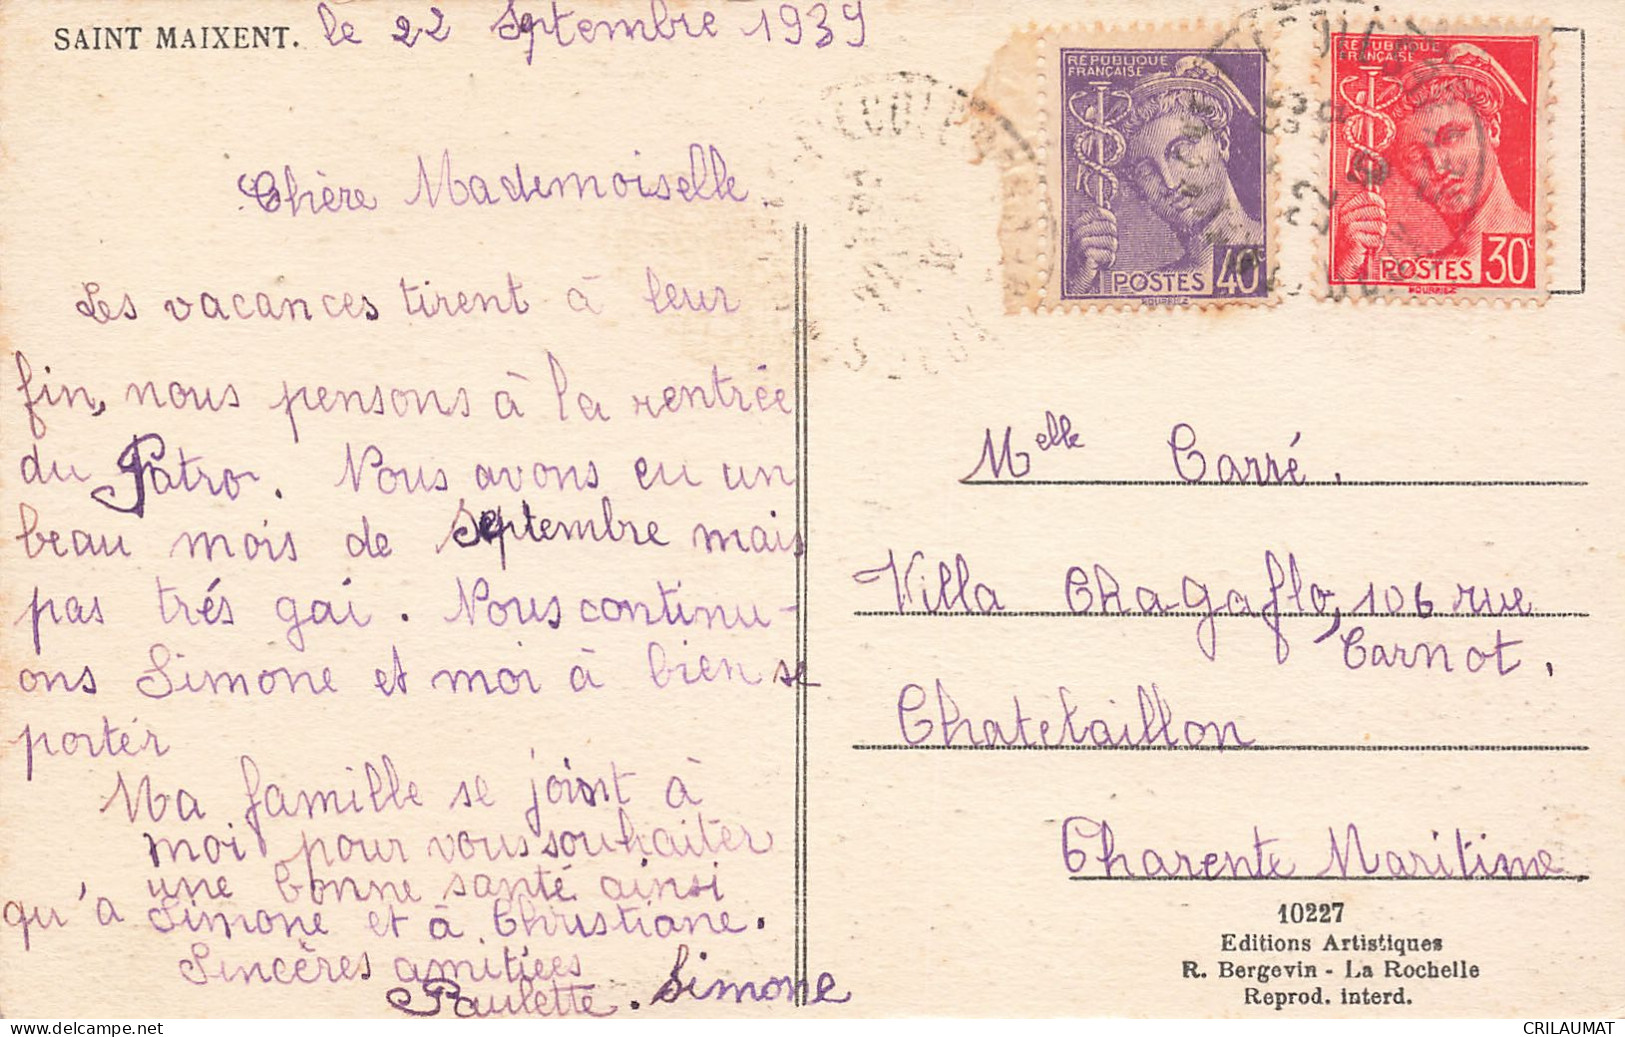 SAINT MAIXENT. le 22 Septembre 1939
Chère Mademoiselle.
Les vacances tirent à leur
fin, nous pensons à la rentrée
du Patro. Nous avons eu un
beau mois de Septembre mais
pas trés gai. Nous continu-
ons Simone et moi à bien se
porter
Ma famille se joint à
moi pour vous souhaiter
une bonne santé ainsi
qu'à Simone et à Christiane.
Sincères amitiées
Paulette. Simone
REPUBLIQUE
FRANÇAISE
POSTES 40c
REPUBLIQUE
FRANÇAISE
POSTES 30c
Melle Carré.
Villa Chagaflo, 106 rue
Carnot.
Chatelaillon
Charente Maritime.
10227
Editions Artistiques
R. Bergevin - La Rochelle
Reprod. interd.
CRILAUMAT